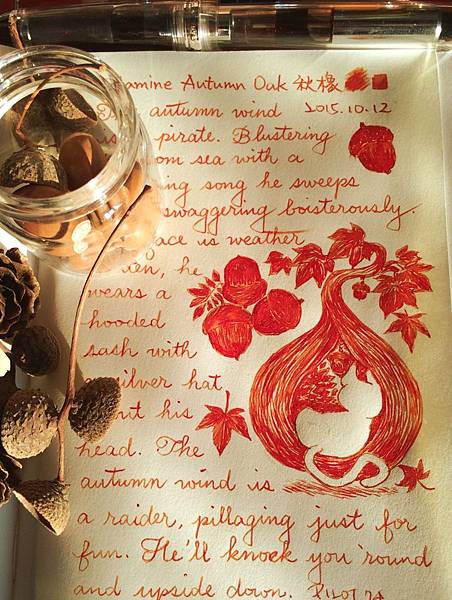 Autumn Oak 秋橡
autumn wind 2015.10.12
pirate. Blustering
sea with a
song he sweeps
swaggering boisterously.
is weather
he
wears a
hooded
sash with
silver hat
his
head. The
autumn wind is
a raider, pillaging just for
fun. He'll knock you 'round
and upside down. PILOT 74